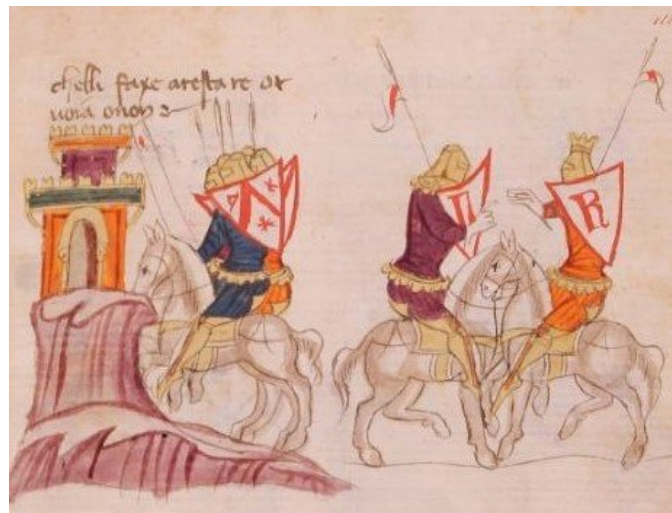 chelli faxe arestare or
uora onon
N
R